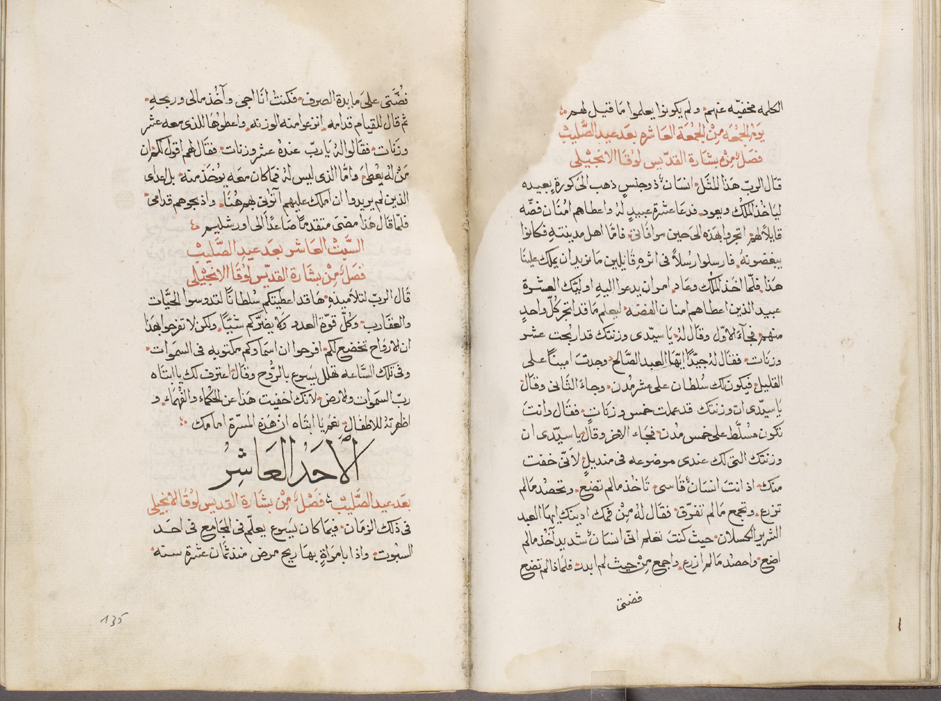 الكلمه مخفيّه عنهم ولم يكونوا يعلموا ما قيل لهم
يوم الجمعه من الجمعة العاشره بعد عيد الصّليب
فصل من بشارة القدّيس لوقا الانجيلي
قال الربّ هذا المثل انسان ذو جنسٍ ذهب الى كورة بعيده
لياخذ الملك ويعود فدعا عشرة عبيدٍ له واعطاهم امنان فضّه
قايلاً لهم اتجروا بهذه الى حين موافاتى فامّا اهل مدينته فكانوا
يبغضونه فارسلوا رسلاً فى اثره قايلين ما نريد ان يملك علينا
هذا فلمّا اخذ الملك وعاد امر ان يدعوا اليه اوليك العشرة
عبيد الذين اعطاهم امنان الفضّه ليعلم ما قد اتجر كلّ واحدٍ
منهم فجآء الاوّل وقال له يا سيّدى وزنتك قد اربحت عشر
وزنات فقال له جيّداً ايّها العبد الصّالح وجدت اميناً على
القليل فيكون لك سُلطان على عشر مدن وجاء الثانى وقال
يا سيّدى ان وزنتك قد عملت خمس وزناتٍ فقال وانت
تكون مسلّط على خمس مدن فجاء الاخر وقال يا سيّدى ان
وزنتك التى لك عندى موضوعه فى منديلٍ لانّى خفت
منك اذ انت انسان قاسى تاخذ مالم تضع وتحصد مالم
تزرع وتجمع مالم تفرّق فقال له من فمك ادينك ايّها العبد
الشرير الكسلان حيث كنت تعلم انى انسان شديد آخذ مالم
اضع واحصد مالم ازرع واجمع من حيث لم ابدد فلماذا لم تضع
فضتى
فضّتى على مايدة الصرف فكنت انا اجى وآخذ مالى وربحه
ثم قال للقيام قدامه انزعوا منه الوزنه واعطوها للذى معه عشر
وزنات فقالوا له يا ربّ عنده عشر وزنات فقال لهم اقول لكم ان
من له يعطى وامّا الذى ليس له فما كان معه يوخذ منه بل اعداى
الذين لم يريدوا ان املك عليهم آتونى بهم هٰهنا واذبحوهم قدامى
فلمّا قال هذا مضى متقدماً صاعداً الى اورشليم
السّبت العاشر بعد عيد الصّليب
فصل من بشارة القدّيس لوقا الانجيلى
قال الربّ لتلاميذه ها قد اعطيتكم سُلطاناً لتدوسوا الحيّات
والعقارب وكلّ قوّة العدو ولا يضرّكم شيّاً ولكن لا تفرحوا بهذا
ان الارواح تخضع لكم افرحوا ان اسماءكم مكتوبه فى السموات
وفى تلك السّاعه هلل يسوع بالرّوح وقال اعترف لك يا ابتاه
ربّ السموات والارض لانّك اخفيت هذا عن الحكماء والفهماء و
اظهرته للاطفال نعم يا ابتاه ان هذه المسرّة امامك
الاحد العاشر
بعد عيد الصّليب فصل من بشارة القديس لوقا الانجيلى
فى ذلك الزمان فيما كان يسوع يعلّم فى المجامع فى احد
السبوت واذا بامراةٍ بها ريح مرض منذ ثمان عشرة سنه
135